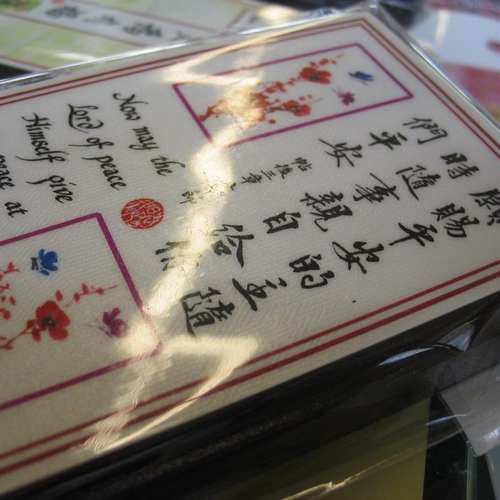 願賜平安的主隨
時隨事親自給你
們平安
帖後三章
Now may the
Lord of peace
Himself give
peace at